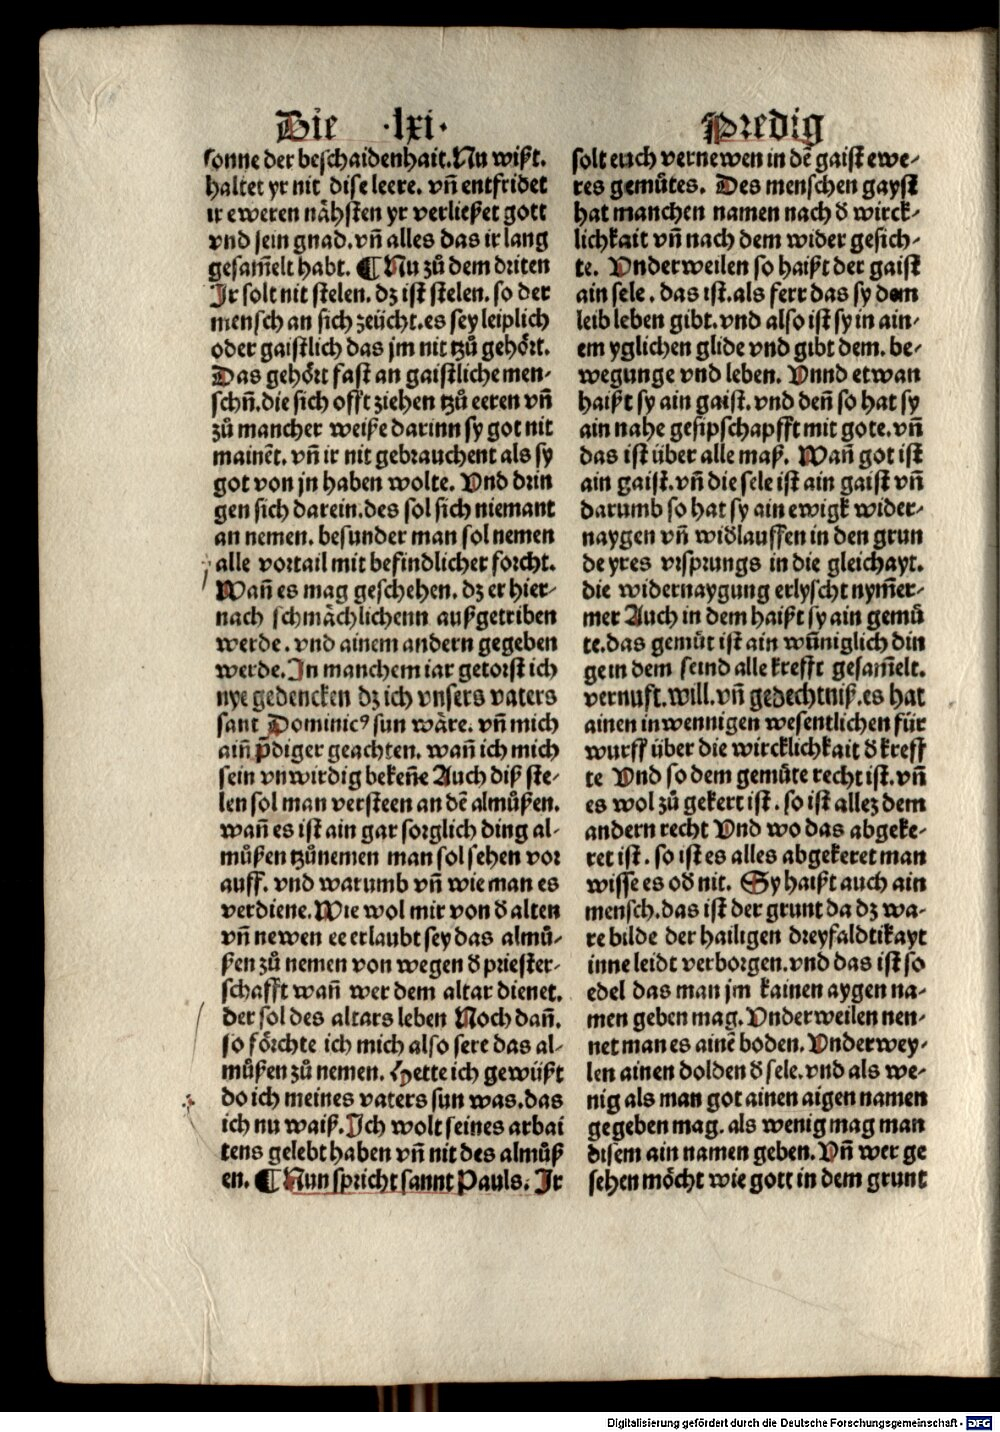 Die ·lxi· Predig
sonne der beschaidenhait. Nu wißt.
haltet yr nit dise leere. vn̄ entfridet
ir eweren nähsten yr verließet gott
vnd sein gnad. vn̄ alles das ir lang
gesam̄elt habt. ¶ Nu zů dem driten
Ir solt nit stelen. dz ist stelen. so der
mensch an sich zeücht. es sey leiplich
oder gaistlich das jm nit tzů gehört.
Das gehört fast an gaistliche men-
schn̄. die sich offt ziehen tzů eeren vn̄
zů mancher weiße darinn sy got nit
mainēt. vn̄ ir nit gebrauchent als sy
got von jn haben wolte. Vnd drin
gen sich darein. des sol sich niemant
an nemen. besunder man sol nemen
alle vortail mit befindlicher forcht.
Wan̄ es mag geschehen. dz er hier-
nach schmächlichenn außgetriben
werde. vnd ainem andern gegeben
werde. In manchem iar getorst ich
nye gedencken dz ich vnsers vaters
sant Dominicꝰ sun wäre. vn̄ mich
ain̄ p̄diger geachten. wan̄ ich mich
sein vnwirdig beken̄e Auch diß ste-
len sol man versteen an dē almůßen.
wan̄ es ist ain gar sorglich ding al-
můßen tzůnemen man sol sehen vor
auff. vnd warumb vn̄ wie man es
verdiene. Wie wol mir von d̄ alten
vn̄ newen ee erlaubt sey das almů-
ßen zů nemen von wegen d̄ priester-
schafft wan̄ wer dem altar dienet.
der sol des altars leben Noch dan̄.
so förchte ich mich also sere das al-
můßen zů nemen. Hette ich gewüßt
do ich meines vaters sun was. das
ich nu waiß. Ich wolt seines arbai
tens gelebt haben vn̄ nit des almůß
en. ¶ Nun spricht sannt Pauls. Ir
solt euch vernewen in dē gaist ewe-
res gemůtes. Des menschen gayst
hat manchen namen nach d̄ wirck-
lichkait vn̄ nach dem wider gesich-
te. Vnderweilen so haißt der gaist
ain sele. das ist. als ferr das sy dem
leib leben gibt. vnd also ist sy in ain-
em yglichen glide vnd gibt dem. be-
wegunge vnd leben. Vnnd etwan
haißt sy ain gaist. vnd den̄ so hat sy
ain nahe gesipschapfft mit gote. vn̄
das ist über alle maß. Wan̄ got ist
ain gaist. vn̄ die sele ist ain gaist vn̄
darumb so hat sy ain ewigk wider-
naygen vn̄ wid̄lauffen in den grun
de yres vrsprungs in die gleichayt.
die widernaygung erlyscht nym̄er-
mer Auch in dem haißt sy ain gemů
te. das gemůt ist ain wun̄iglich din
ge in dem seind alle krefft gesam̄elt.
vernuft. will. vn̄ gedechtniß. es hat
ainen inwennigen wesentlichen für
wurff über die wircklichkait d̄ kreff
te Vnd so dem gemůte recht ist. vn̄
es wol zů gekert ist. so ist allez dem
andern recht Vnd wo das abgeke-
ret ist. so ist es alles abgekeret man
wisse es od̄ nit. Sy haißt auch ain
mensch. das ist der grunt da dz wa-
re bilde der hailigen dreyfaldtikayt
inne leidt verborgen. vnd das ist so
edel das man jm kainen aygen na-
men geben mag. Vnderweilen nen-
net man es ainē boden. Vnderwey-
len ainen dolden d̄ sele. vnd als we-
nig als man got ainen aigen namen
gegeben mag. als wenig mag man
disem ain namen geben. Vn̄ wer ge
sehen möcht wie gott in dem grunt
Digitalisierung gefördert durch die Deutsche Forschungsgemeinschaft - DFG